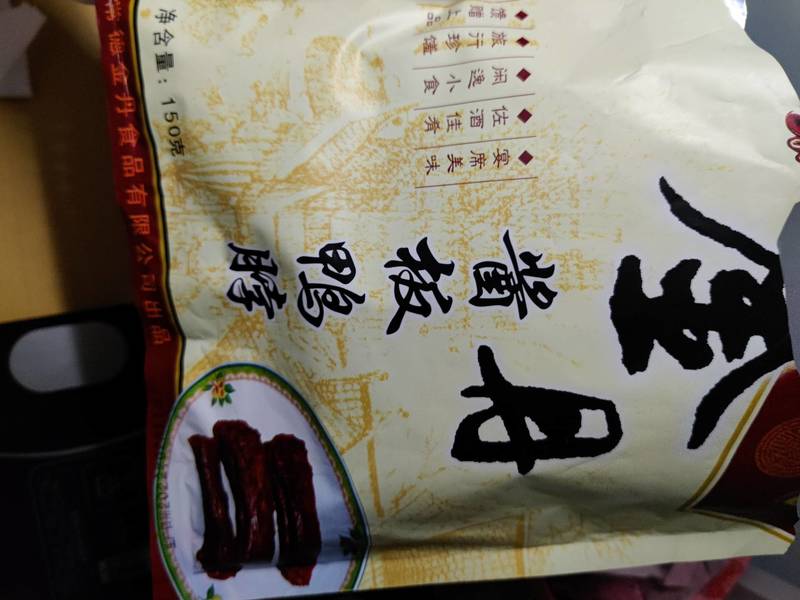 金丹
酱板鸭脖
宴席美味
佐酒佳肴
闲逸小食
旅行珍馐
馈赠上品
净含量：150克
常德金丹食品有限公司出品